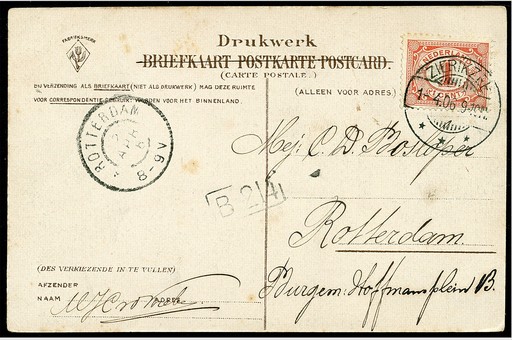 FABRIEKSMERK
Drukwerk
BRIEFKAART POSTKARTE POSTCARD.
(CARTE POSTALE.)
BIJ VERZENDING ALS BRIEFKAART (NIET ALS DRUKWERK) MAG DEZE RUIMTE
VOOR CORRESPONDENTIE GEBRUIKT WORDEN VOOR HET BINNENLAND.
(ALLEEN VOOR ADRES)
NEDERLAND
ZIERIKZEE
ROTTERDAM
8-9V
Mej. C. D.
B 214
Rotterdam.
Burgem: Hoffmanplein B.
(DES VERKIEZENDE IN TE VULLEN)
AFZENDER
NAAM ADRES